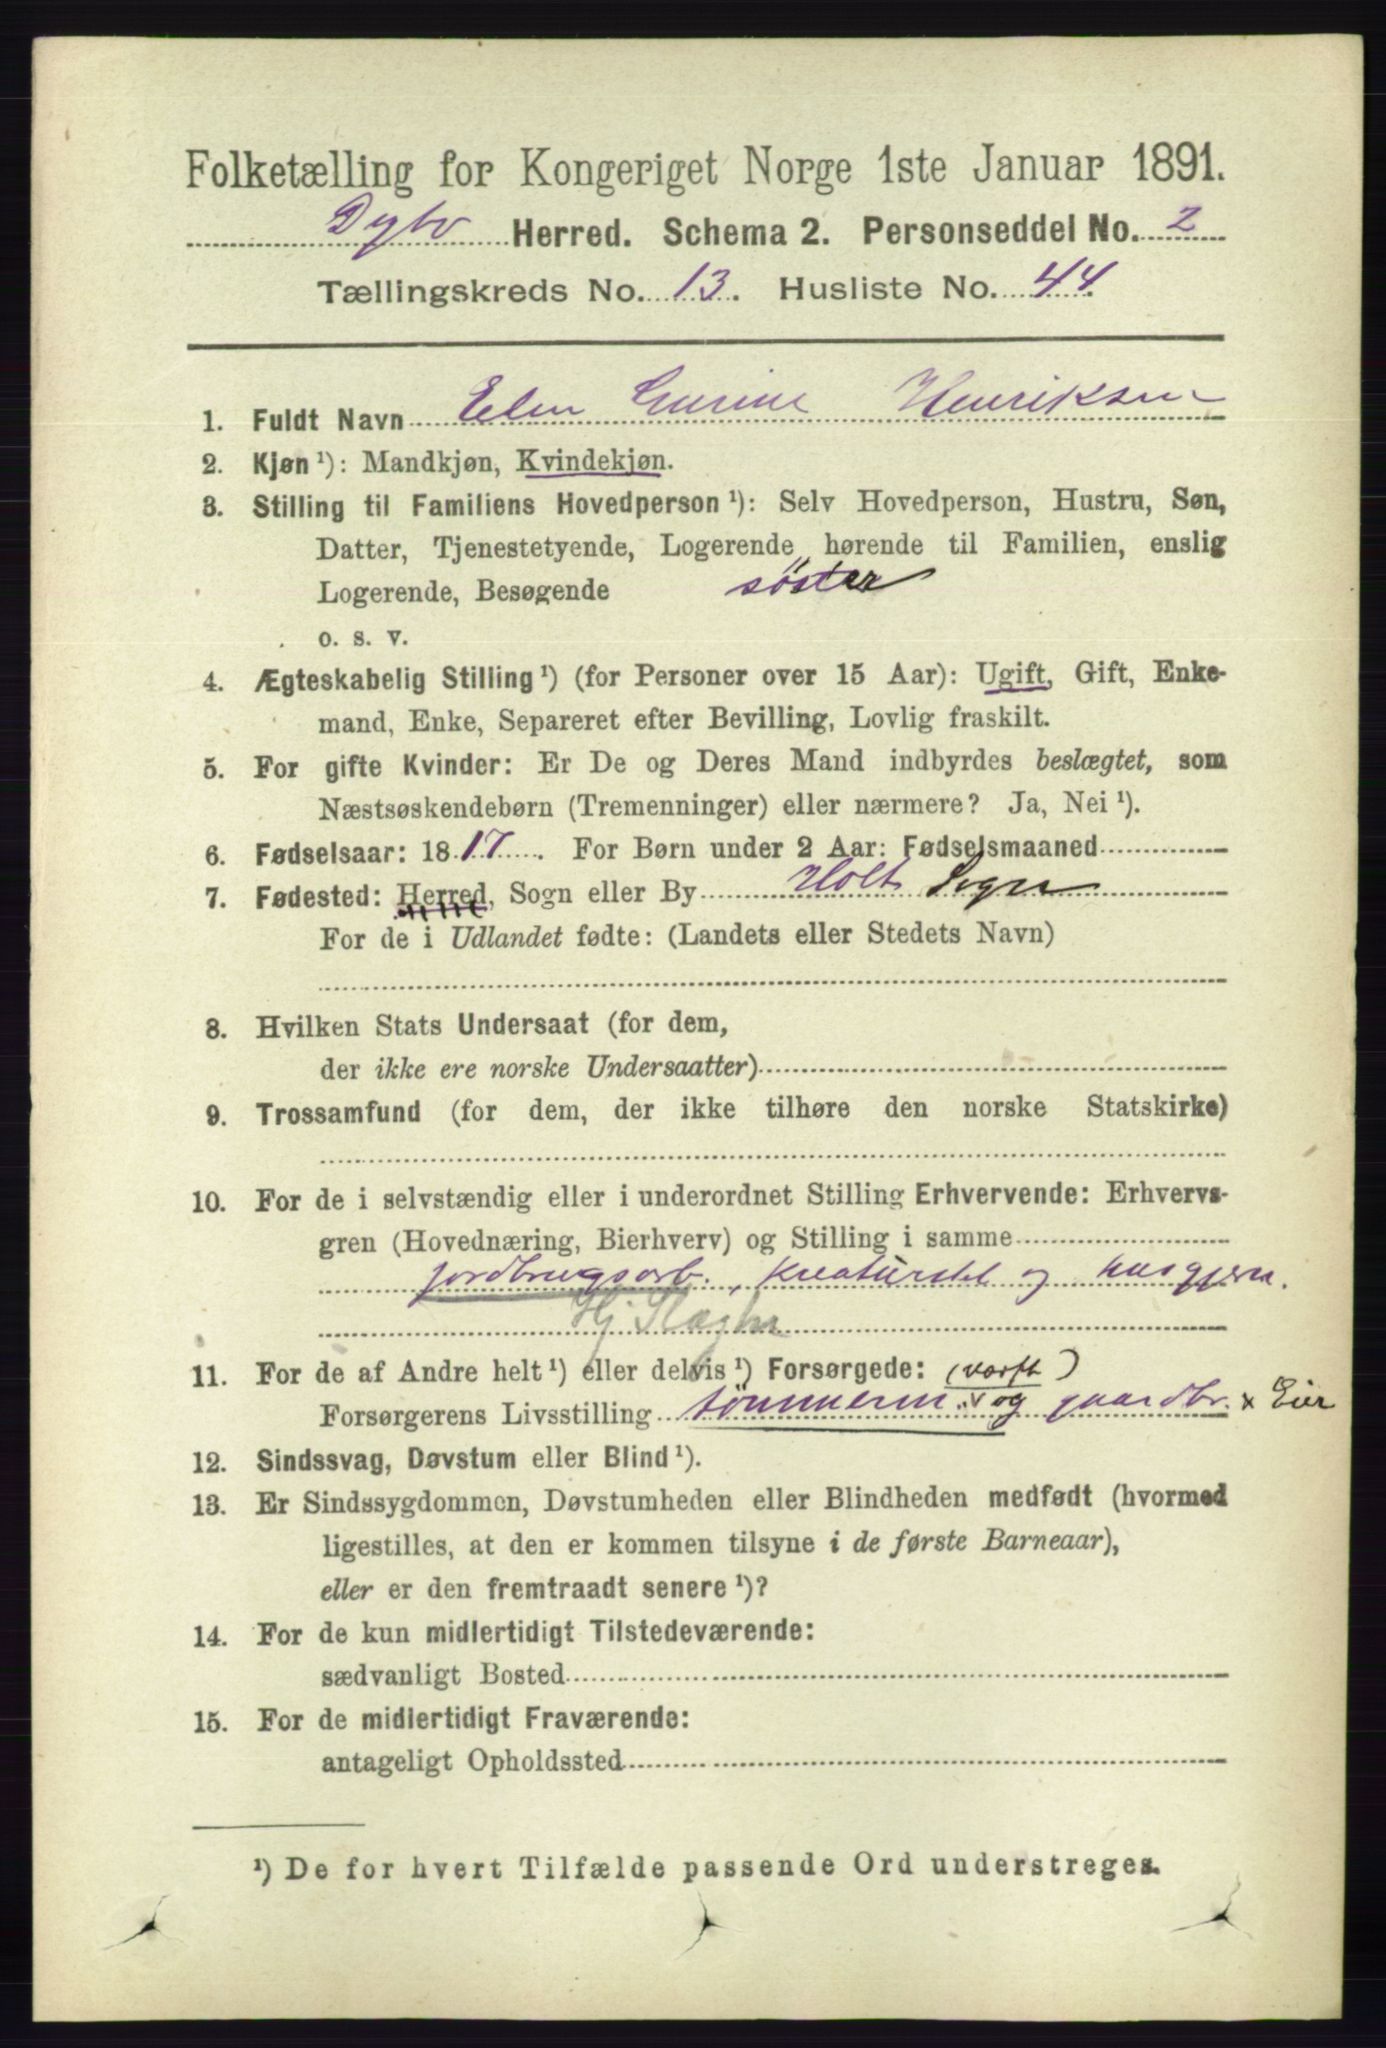 Folketælling for Kongeriget Norge 1ste Januar 1891.
Dybv Herred. Schema 2. Personseddel No. 2
Tællingskreds No. 13. Husliste No. 44.
1. Fuldt Navn Elen Gurine Henriksen
2. Kjøn ¹): Mandkjøn, Kvindekjøn.
3. Stilling til Familiens Hovedperson ¹): Selv Hovedperson, Hustru, Søn,
Datter, Tjenestetyende, Logerende hørende til Familien, enslig
Logerende, Besøgende söster
o. s. v.
4. Ægteskabelig Stilling ¹) (for Personer over 15 Aar): Ugift, Gift, Enke-
mand, Enke, Separeret efter Bevilling, Lovlig fraskilt.
5. For gifte Kvinder: Er De og Deres Mand indbyrdes beslægtet, som
Næstsøskendebørn (Tremenninger) eller nærmere? Ja, Nei ¹).
6. Fødselsaar: 1817. For Børn under 2 Aar: Fødselsmaaned
7. Fødested: Herred, Sogn eller By Holt Sogn
For de i Udlandet fødte: (Landets eller Stedets Navn)
8. Hvilken Stats Undersaat (for dem,
der ikke ere norske Undersaatter)
9. Trossamfund (for dem, der ikke tilhøre den norske Statskirke)
10. For de i selvstændig eller i underordnet Stilling Erhvervende: Erhvervs-
gren (Hovednæring, Bierhverv) og Stilling i samme
jordbrugsarb., kreaturstel og husgjern.
Hj Slægtn
11. For de af Andre helt ¹) eller delvis ¹) Forsørgede: (værft)
Forsørgerens Livsstilling tömmerm. og gaardbr. x Eier
12. Sindssvag, Døvstum eller Blind ¹).
13. Er Sindssygdommen, Døvstumheden eller Blindheden medfødt (hvormed
ligestilles, at den er kommen tilsyne i de første Barneaar),
eller er den fremtraadt senere ¹)?
14. For de kun midlertidigt Tilstedeværende:
sædvanligt Bosted
15. For de midlertidigt Fraværende:
antageligt Opholdssted
¹) De for hvert Tilfælde passende Ord understreges.